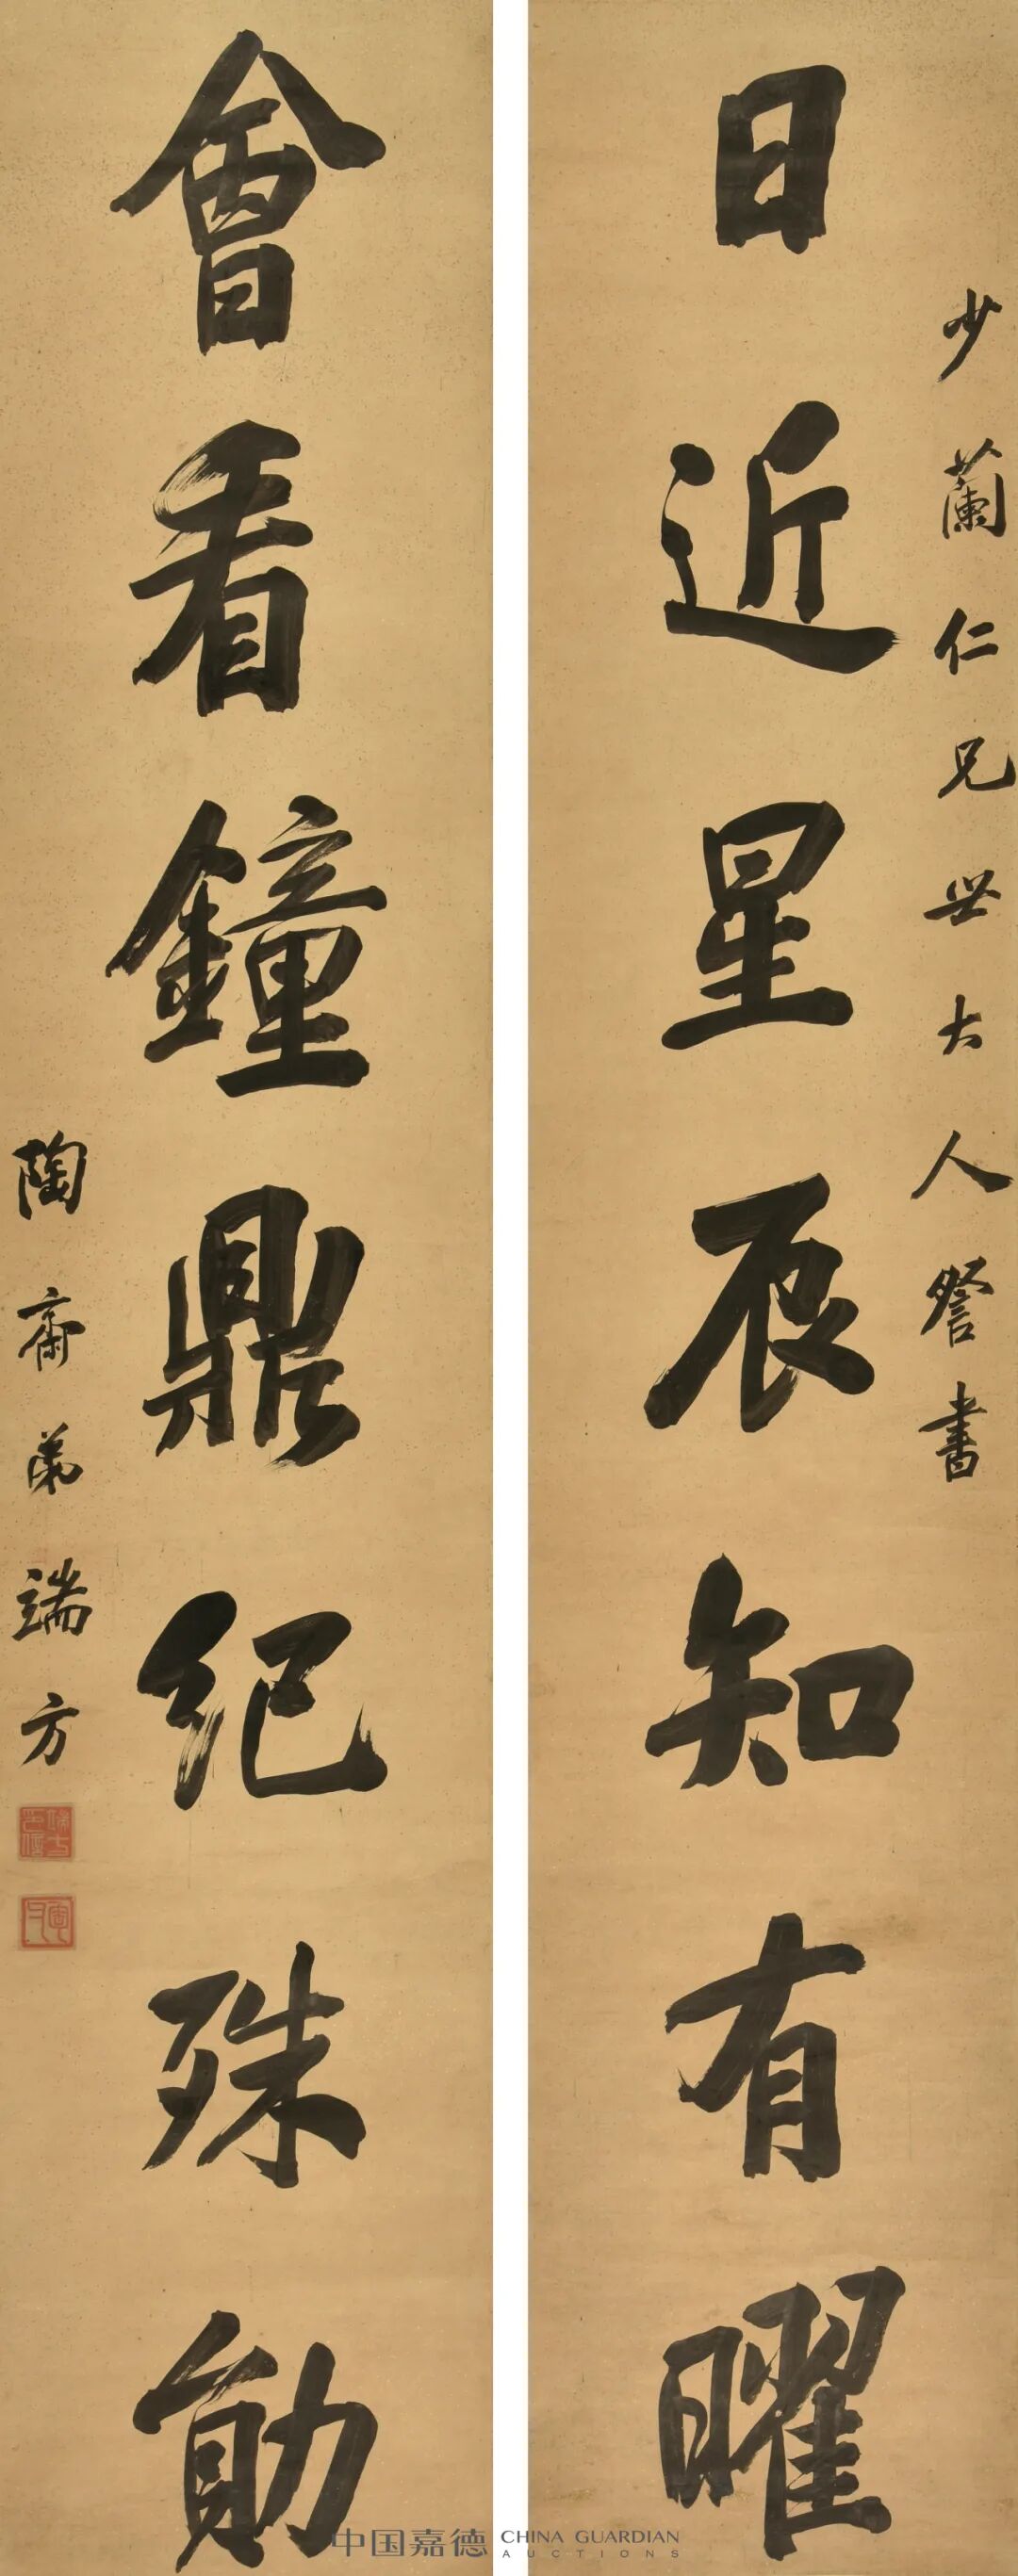 少蘭仁兄世大人詧書
日近星辰知有曜
會看鐘鼎紀殊勛
陶齋弟端方
端方印信
中国嘉德 CHINA GUARDIAN
AUCTIONS